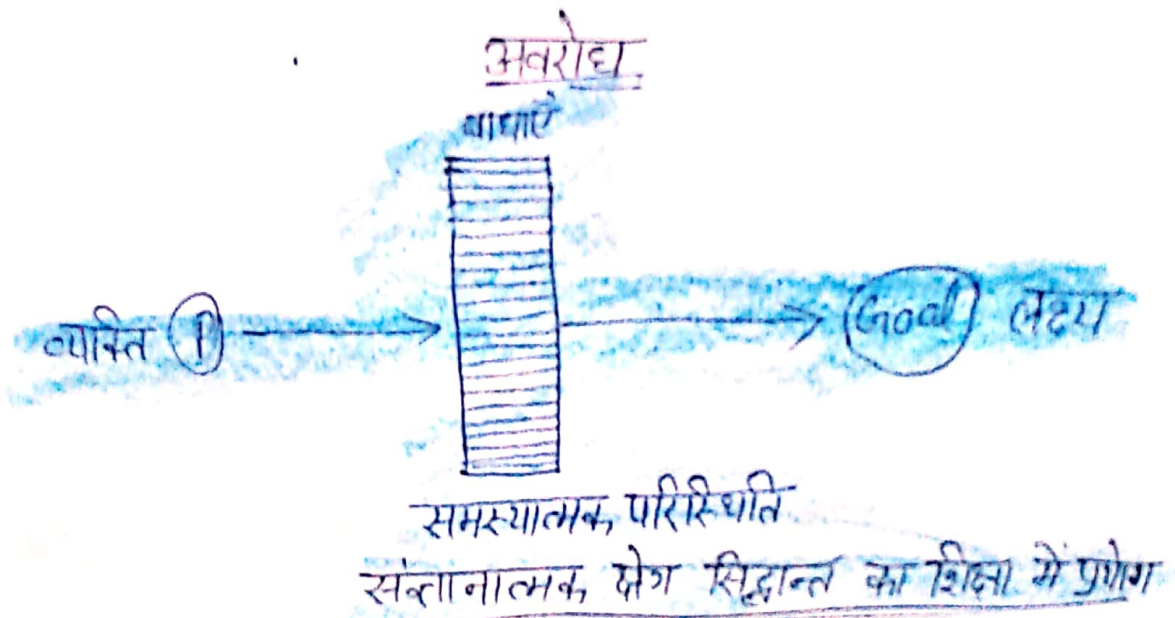 अवरोध
बाधाएँ
व्यक्ति P Goal लक्ष्य
समस्यात्मक परिस्थिति
संज्ञानात्मक क्षेत्र सिद्धान्त का शिक्षा में प्रयोग